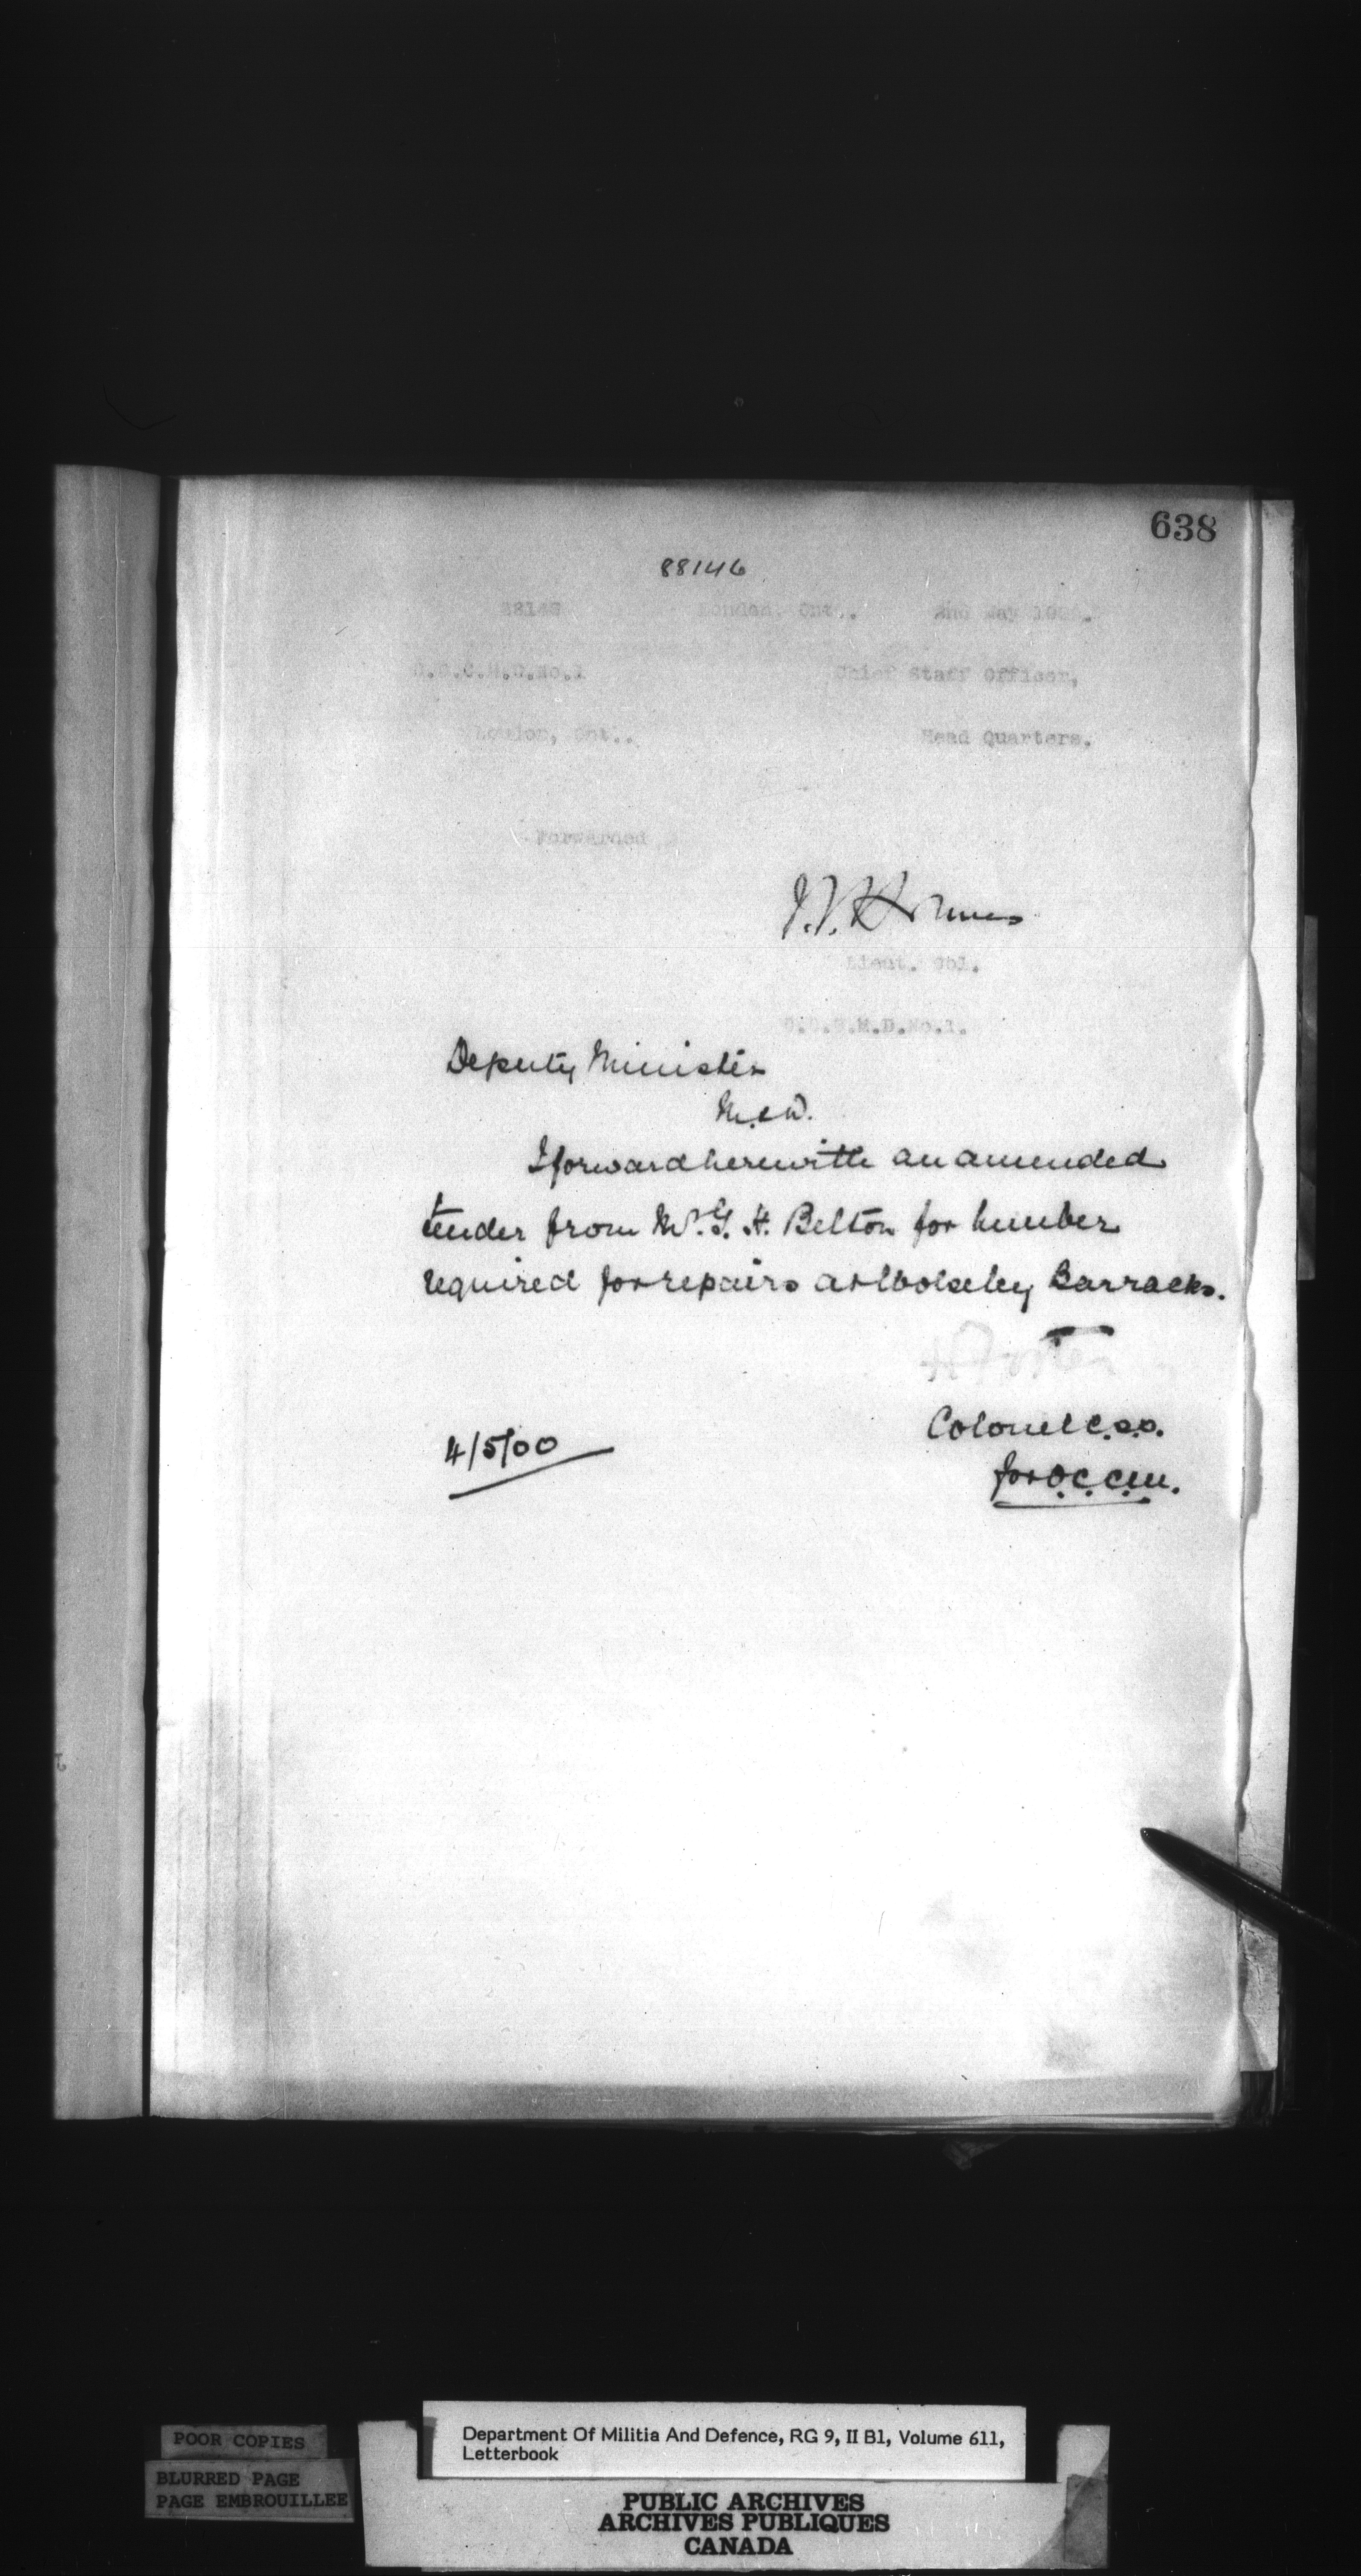 638
88146
88146 London, Ont.. 2nd May 1900.
D.O.C.M.D.No.1 Chief Staff Officer,
London, Ont.. Head Quarters.
Forwarded
Holmes
Lieut. Col.
D.O.C.M.D.No.1.
Deputy Minister
M. & D.
I forward herewith an amended
tender from Mr. G. H. Belton for lumber
required for repairs at Wolseley Barracks.
Foster
Colonel C.S.O.
for O.C.C.M.
4/5/00
POOR COPIES
BLURRED PAGE
PAGE EMBROUILLEE
Department Of Militia And Defence, RG 9, II B1, Volume 611,
Letterbook
PUBLIC ARCHIVES
ARCHIVES PUBLIQUES
CANADA